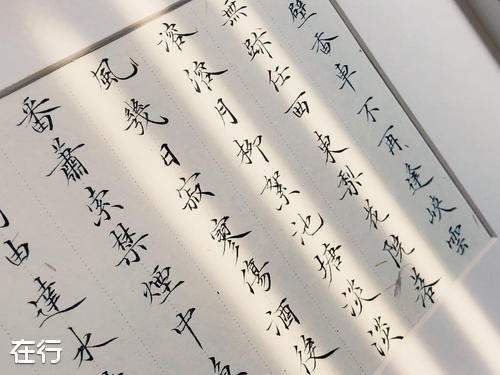 壁香車不再逢峽雲
無跡任西東梨花院落
溶溶月柳絮池塘淡淡
風幾日寂寥傷酒後
番蕭索禁煙中
由達水
在行